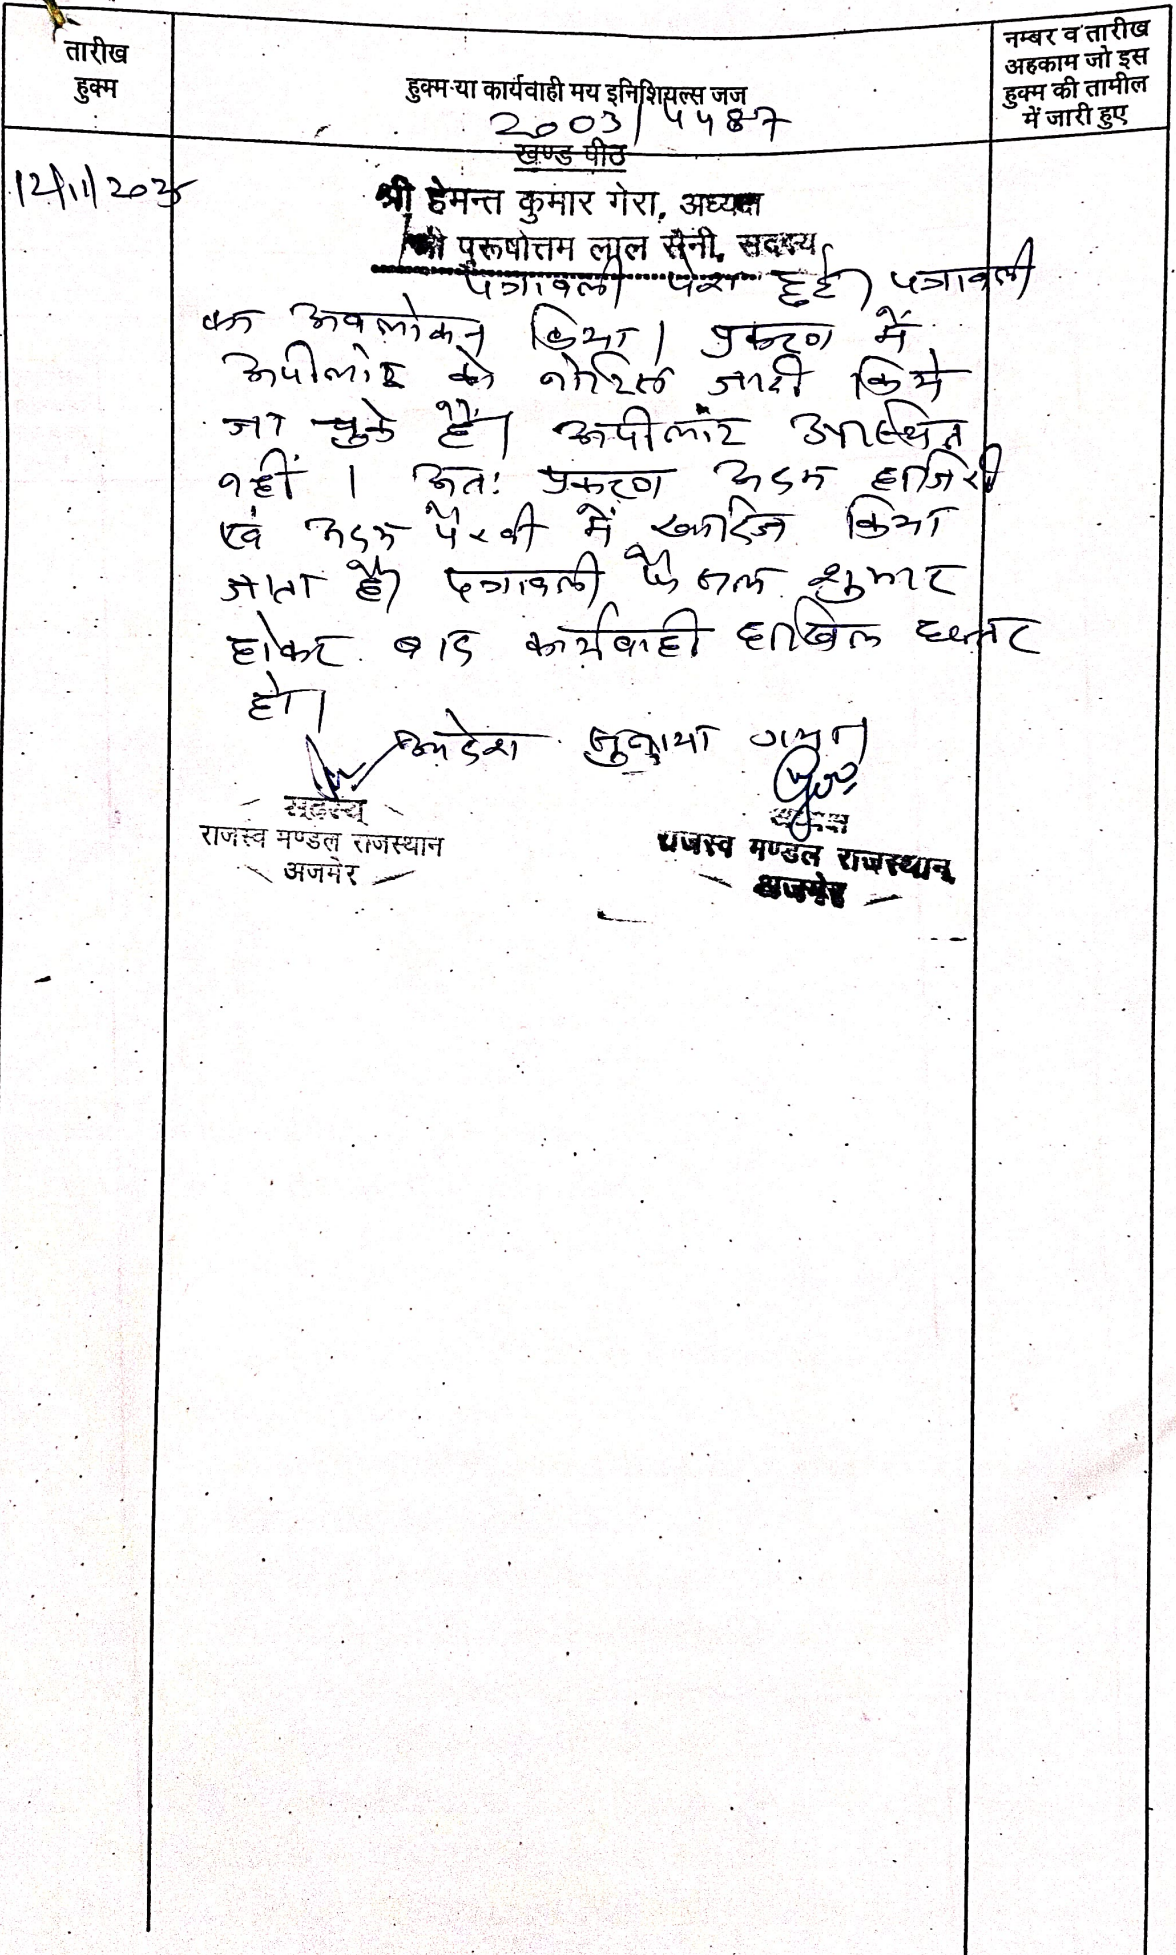 तारीख
हुक्म
हुक्म या कार्यवाही मय इनिशियल्स जज
नम्बर व तारीख
अहकाम जो इस
हुक्म की तामील
में जारी हुए
2003/5487
खण्ड पीठ
12/11/2025
श्री हेमन्त कुमार गेरा, अध्यक्ष
श्री पुरूषोत्तम लाल सैनी, सदस्य
पत्रावली पेश हुई। पत्रावली
का अवलोकन किया। प्रकरण में
अपीलांट को नोटिस जारी किये
जा चुके हैं। अपीलांट उपस्थित
नहीं। अतः प्रकरण अदम हाजिरी
एवं अदम पैरवी में खारिज किया
जाता है। पत्रावली फैसल शुमार
होकर बाद कार्यवाही दाखिल दफ्तर
हो।
आदेश सुनाया गया।
सदस्य
राजस्व मण्डल राजस्थान
अजमेर
अध्यक्ष
राजस्व मण्डल राजस्थान
अजमेर